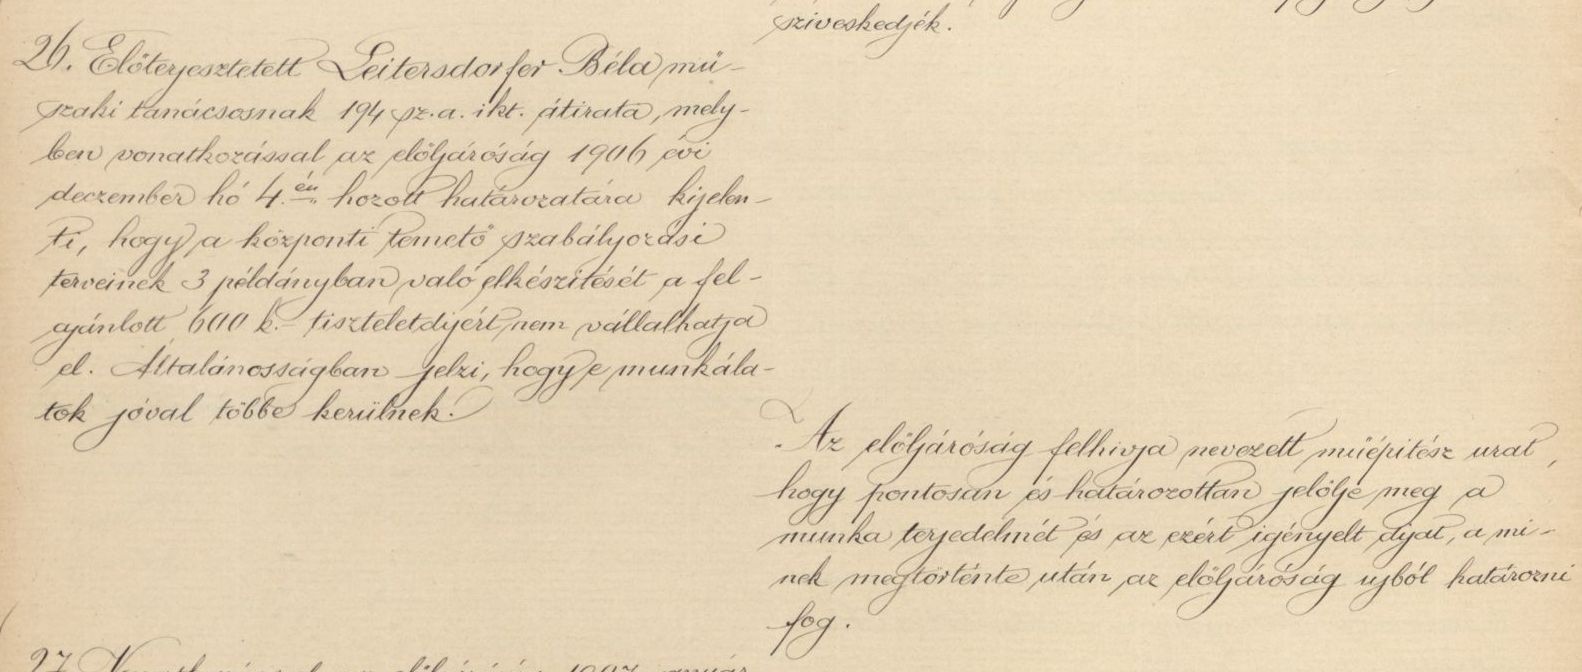 sziveskedjék.
26. Előterjesztetett Leitersdorfer Béla mű-
szaki tanácsosnak 194 sz. a. ikt. átirata, mely-
ben vonatkozással az előljáróság 1906 évi
deczember hó 4.én hozott határozatára kijelen-
ti, hogy a központi temető szabályozási
terveinek 3 példányban való elkészitését a fel-
ajánlott 600 k.- tiszteletdijért nem vállalhatja
el. Általánosságban jelzi, hogy e munkála-
tok jóval többe kerülnek.
Az előljáróság felhivja nevezett műépitész urat,
hogy pontosan és határozottan jelölje meg a
munka terjedelmét és az ezért igényelt dijat, a mi-
nek megtörténte után az előljáróság ujból határozni
fog.
27. az előljáróság 1907 január